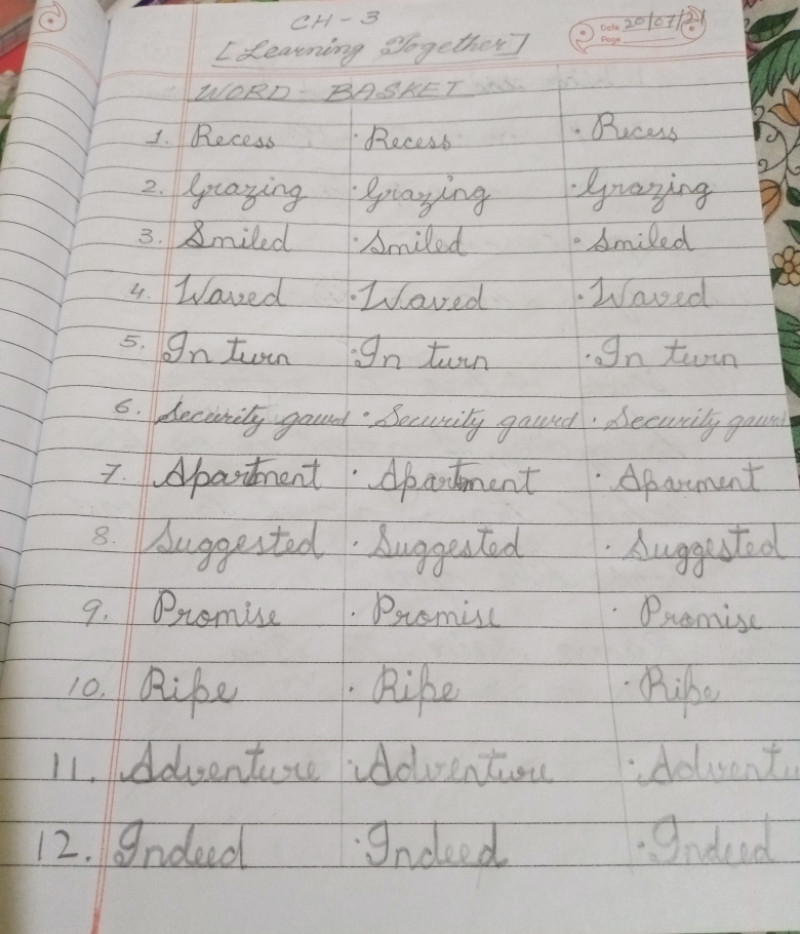 CH - 3
Date 20/07/21
[Learning Together]
Page
WORD - BASKET
1. Recess · Recess · Recess
2. Grazing · Grazing · Grazing
3. Smiled · Smiled · Smiled
4. Waved · Waved · Waved
5. In turn · In turn · In turn
6. Security gaurd · Security gaurd · Security gaurd
7. Apartment · Apartment · Aparment
8. Suggested · Suggested · Suggested
9. Promise · Promise · Promise
10. Ripe · Ripe · Ripe
11. Adventure · Adventure · Adventu
12. Indeed · Indeed · Indeed